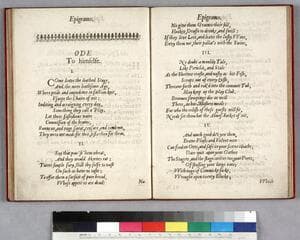 Epigrams.
ODE
To himselfe.
I.
Come leave the loathed Stage,
And the more loathsome Age,
Where pride and impudence in faction knit,
Usurpe the Chaire of wit:
Indicting and arraigning every day,
Something they call a Play.
Let their fastidious vaine
Commission of the braine,
Runne on, and rage, sweat, censure, and condemn,
They were not made for thee, lesse thou for them.
II.
Say that thou pour'st 'hem wheat,
And they would Akornes eat:
Twere simple fury, still thy selfe to wast
On such as have no taste:
To offer them a surfeit of pure bread,
Whose appetites are dead:
No
Epigrams.
No give them Graines their fill,
Husks, Draffe to drinke, and swill:
If they love Lees, and leave the lusty Wine,
Envy them not their pallat's with the swine.
III.
No doubt a mouldy Tale,
Like Pericles, and Stale
As the Shrives crusts, and nasty as his Fish,
Scraps out of every Dish,
Throwne forth and rak't into the common Tub,
May keep up the play Club.
Broomes sweepings doe as well
There, as his Masters meale:
For who the relish of these guests will fit,
Needs set them but the Almes-basket of wit.
IV.
And much good do't yee then,
Brave Plush and Velvet men
Can feed on Orts, and safe in your scoene cloaths,
Dare quit upon your Oathes
The Stagers, and the stage-writers too; your Peers,
Of stuffing your large eares
With rage of Commicke socks,
Wrought upon twenty Blocks;
Which